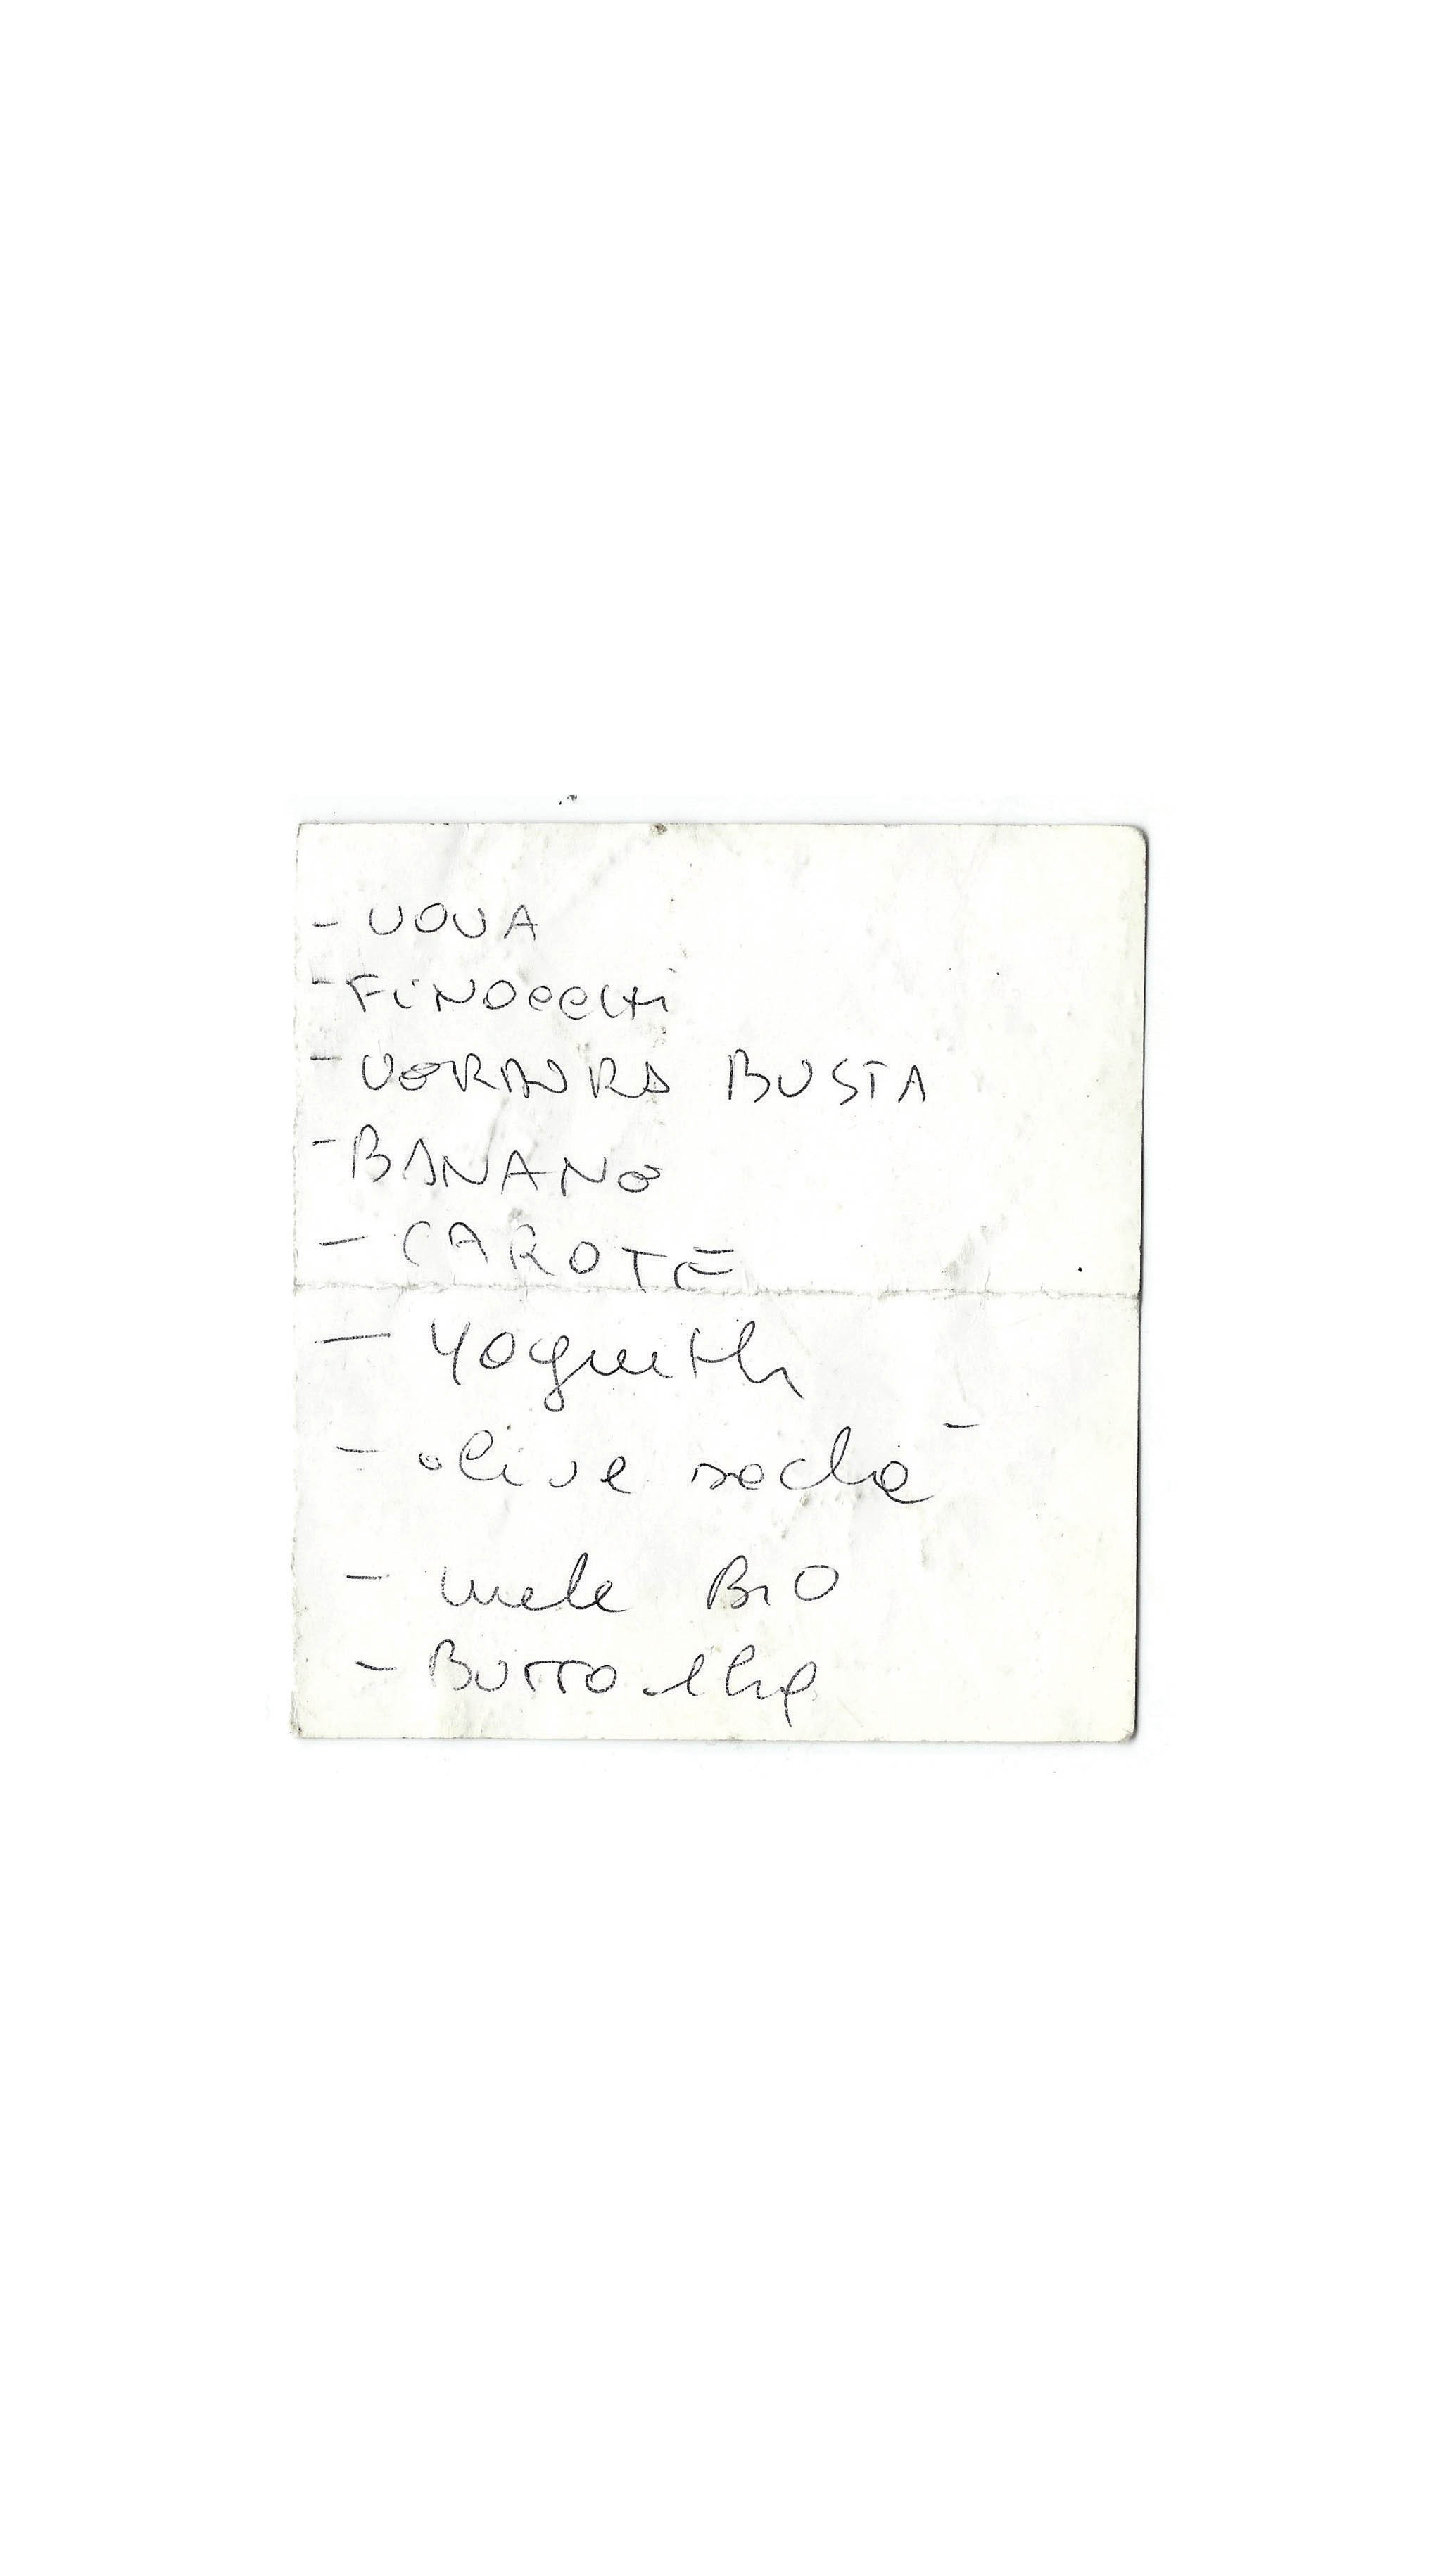 - UOVA
- FiNOCCHi
- VERDURA BUSTA
- BANANE
- CAROTE
- yogurth
- olive
- mele BIO
- BURRO 1kg